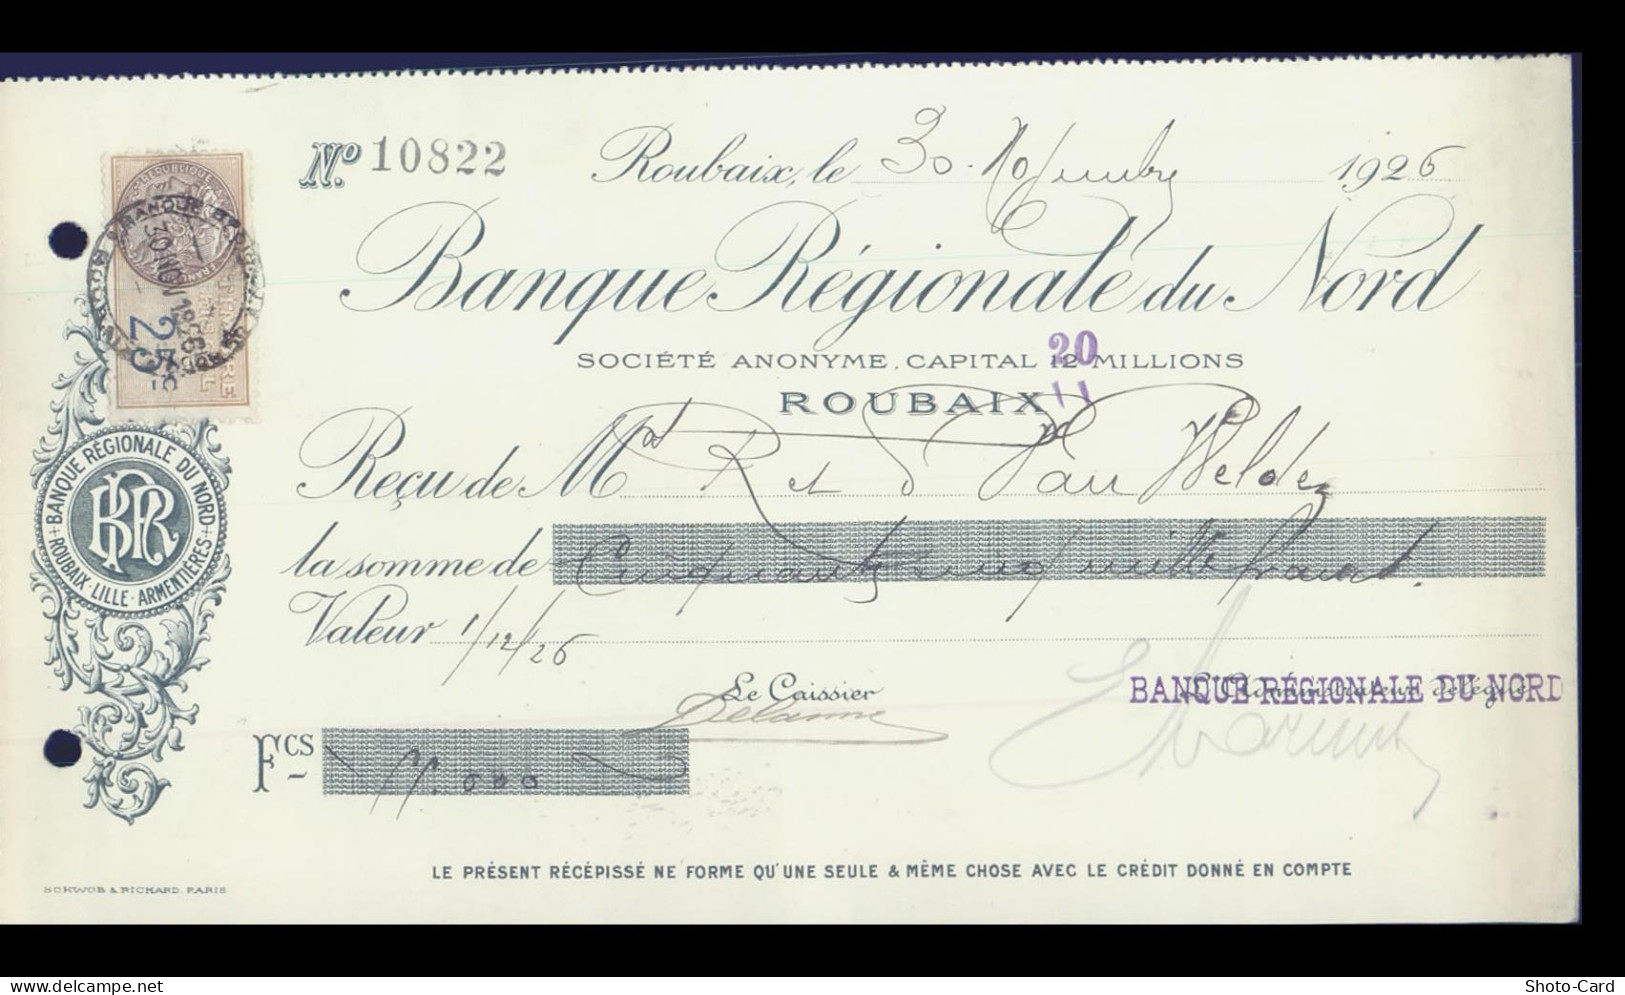 Nº 10822 Roubaix, le 30 Novembre 1926
Banque Régionale du Nord
SOCIÉTÉ ANONYME, CAPITAL 12 MILLIONS
20
ROUBAIX
Reçu de M R et Van Welden
la somme de Cinquante cinq mille francs
Valeur 1/12/26
Le Caissier
BANQUE RÉGIONALE DU NORD
Fcs 55.000
LE PRÉSENT RÉCÉPISSÉ NE FORME QU'UNE SEULE & MÊME CHOSE AVEC LE CRÉDIT DONNÉ EN COMPTE
SCHWOB & RICHARD. PARIS
BANQUE RÉGIONALE DU NORD
ROUBAIX - LILLE - ARMENTIÈRES
BRN
30 NOV 1926
25 c
delcampe.net
Shoto-Card